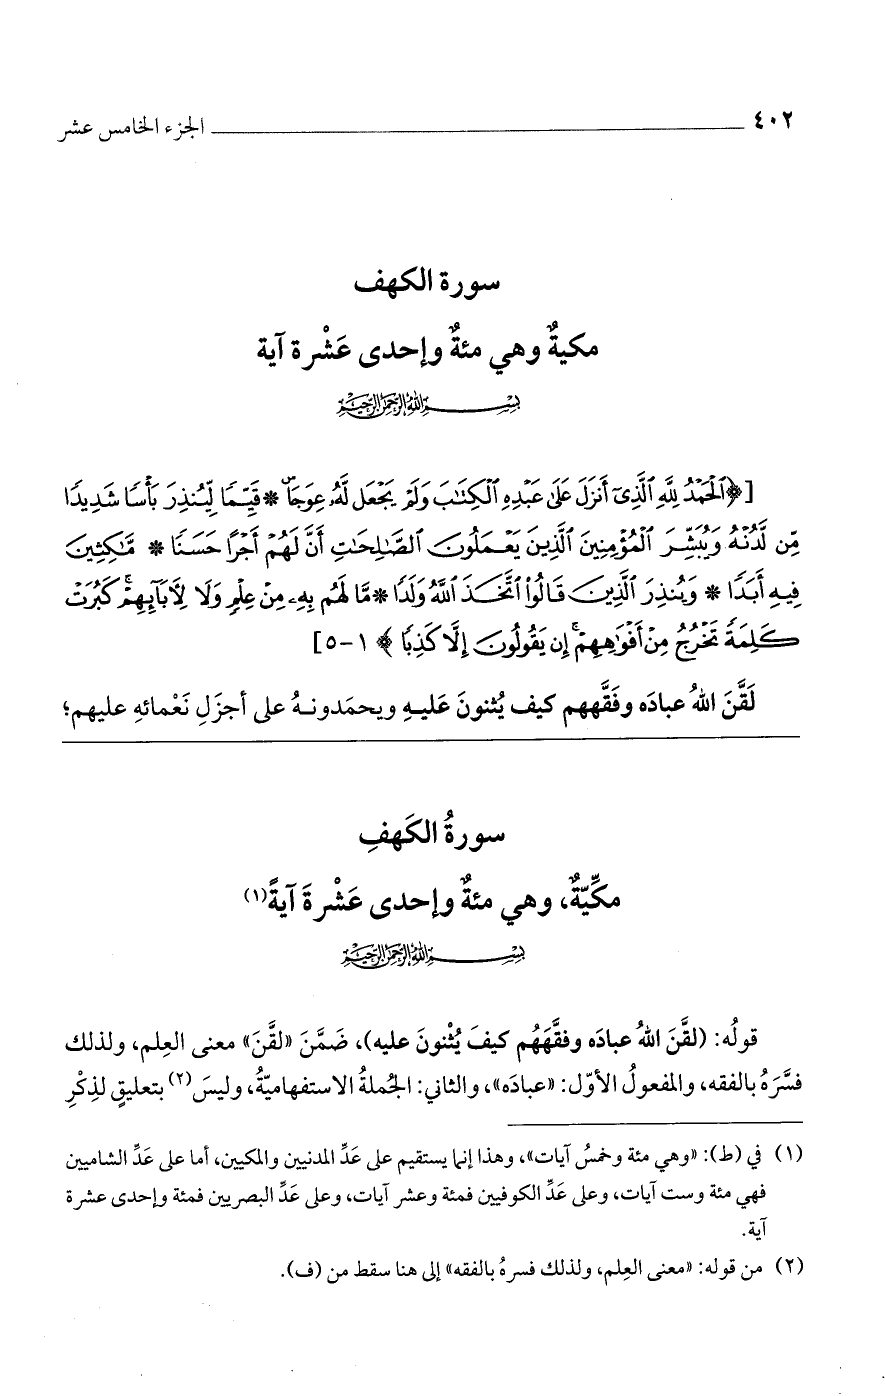 ٤٠٢ ــــــــــــــــــــ الجزء الخامس عشر
سورة الكهف
مكيةٌ وهي مئةٌ وإحدى عَشْرة آية
بِسْمِ اللَّهِ الرَّحْمَنِ الرَّحِيمِ
[﴿اَلْحَمْدُ لِلَّهِ اَلَّذِىٓ أَنزَلَ عَلَىٰ عَبْدِهِ اِلْكِتَٰبَ وَلَمْ يَجْعَل لَّهُۥ عِوَجَاۜ * قَيِّمًا لِّيُنذِرَ بَأْسًا شَدِيدًا
مِّن لَّدُنْهُ وَيُبَشِّرَ اَلْمُؤْمِنِينَ اَلَّذِينَ يَعْمَلُونَ اَلصَّٰلِحَٰتِ أَنَّ لَهُمْ أَجْرًا حَسَنًا * مَّٰكِثِينَ
فِيهِ أَبَدًا * وَيُنذِرَ اَلَّذِينَ قَالُواْ اُتَّخَذَ اَللَّهُ وَلَدًا * مَّا لَهُم بِهِۦ مِنْ عِلْمٍ وَلَا لِأٓبَآئِهِمْ ۚ كَبُرَتْ
كَلِمَةً تَخْرُجُ مِنْ أَفْوَٰهِهِمْ ۚ إِن يَقُولُونَ إِلَّا كَذِبًا ﴾ ١-٥]
لَقَّنَ اللهُ عبادَه وفَقَّههم كيف يُثنونَ عَليهِ ويحمَدونهُ على أجزَلِ نَعْمائهِ عليهم؛
سورةُ الكَهفِ
مكِّيّةٌ، وهي مئةٌ وإحدى عَشْرةَ آيةً(١)
بِسْمِ اللَّهِ الرَّحْمَنِ الرَّحِيمِ
قولُه: (لقَّنَ اللهُ عبادَه وفقَّهَهُم كيفَ يُثْنونَ عليه)، ضَمَّنَ «لقَّنَ» معنى العِلم، ولذلك
فسَّرَهُ بالفقه، والمفعولُ الأوّل: «عبادَه»، والثاني: الجُملةُ الاستفهاميّةُ، وليسَ(٢) بتعليقٍ لذِكْرِ
(١) في (ط): «وهي مئة وخمسُ آيات»، وهذا إنما يستقيم على عَدِّ المدنيين والمكيين، أما على عَدِّ الشاميين
فهي مئة وست آيات، وعلى عَدِّ الكوفيين فمئة وعشر آيات، وعلى عَدِّ البصريين فمئة وإحدى عشرة
آية.
(٢) من قوله: «معنى العِلم، ولذلك فسرهُ بالفقه» إلى هنا سقط من (ف).